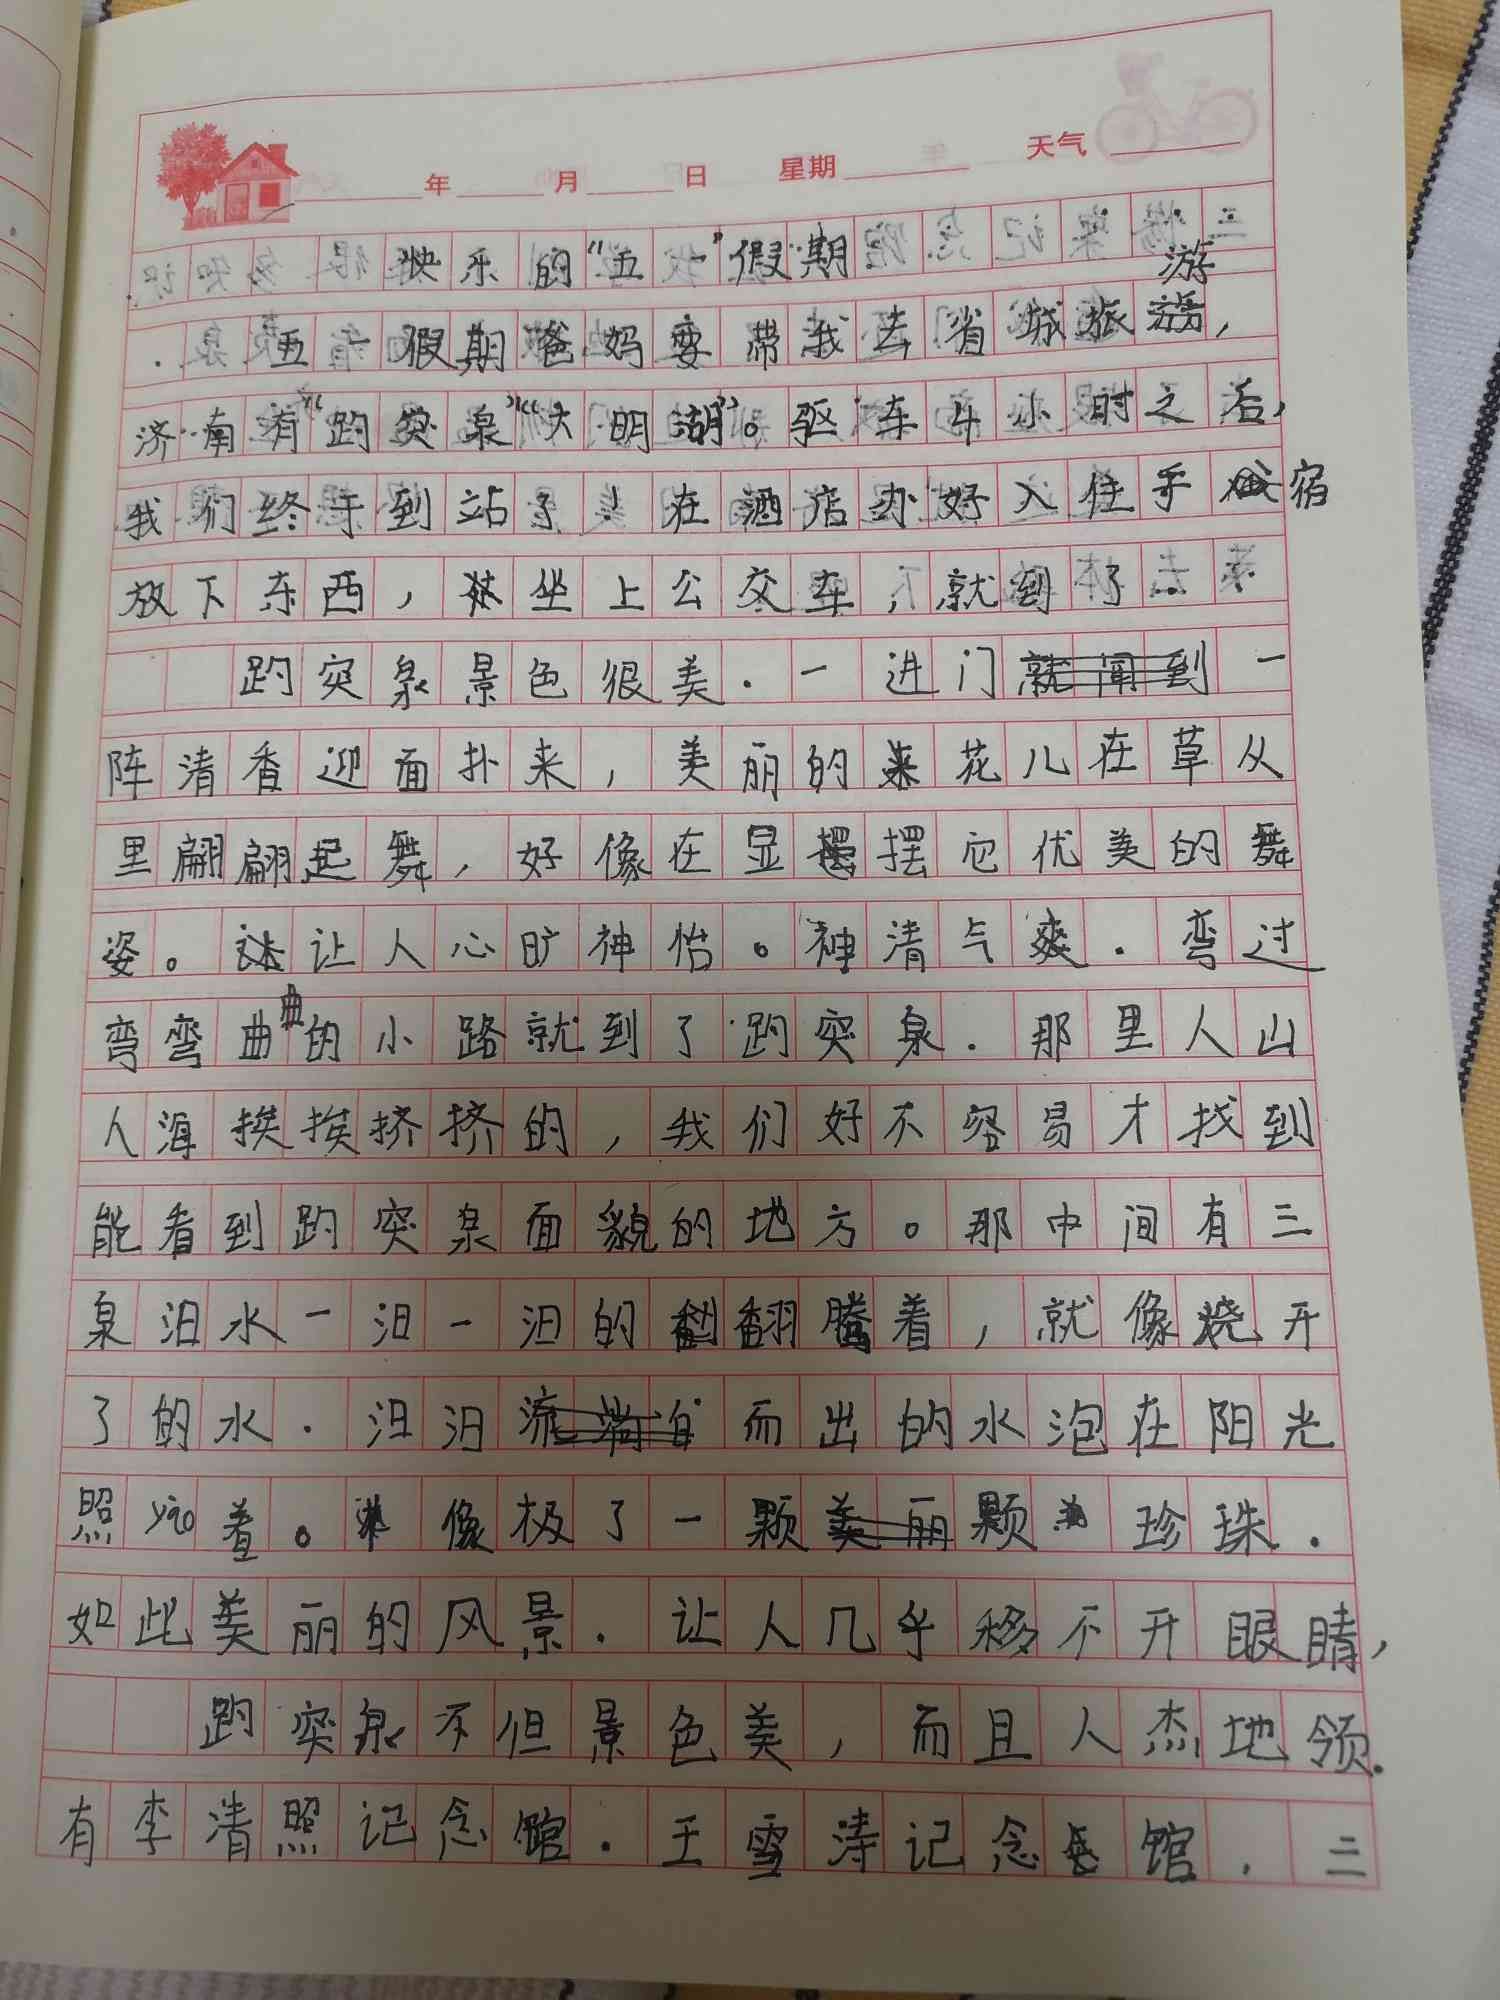 年 月 日 星期 天气
快乐的“五一”假期
五一假期爸妈要带我去省城旅游,
济南有“趵突泉”“大明湖”。驱车4小时之后,
我们终于到站了！在酒店办好入住手宿
放下东西,坐上公交车,就到了.
趵突泉景色很美.一进门就闻到一
阵清香迎面扑来,美丽的花儿在草从
里翩翩起舞,好像在显摆它优美的舞
姿。让人心旷神怡。神清气爽.弯过
弯弯曲曲的小路就到了趵突泉.那里人山
人海挨挨挤挤的,我们好不容易才找到
能看到趵突泉面貌的地方。那中间有三
泉汩水一汩一汩的翻腾着,就像烧开
了的水.汩汩流淌自而出的水泡在阳光
照yào着。像极了一颗美丽颗珍珠.
如此美丽的风景.让人几乎移不开眼睛,
趵突泉不但景色美,而且人杰地领.
有李清照记念馆.王雪涛记念馆.三